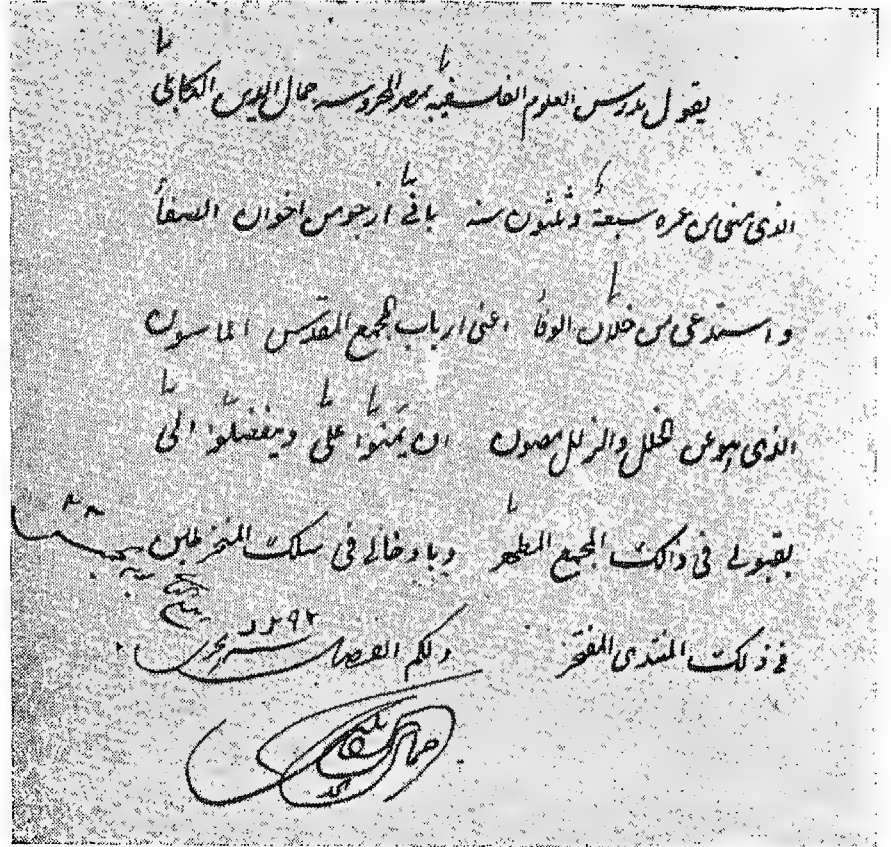 يقول مدرس العلوم الفلسفية بمصر المحروسه جمال الدين الكابلى
الذى مضى من عمره سبعة وثلثون سنه بانى ارجو من اخوان الصفا
واستدعى من خلان الوفا اعنى ارباب المجمع المقدس الماسون
الذى هو عن الخلل والزلل مصون ان يمنوا على ويتفضلوا الى
بقبولى فى ذالك المجمع المطهر وبادخالى فى سلك المنخرطين
فى ذلك المنتدى المفتخر ولكم الفضل
ربيع
٢٢
١٢٩٢
جمال الدين